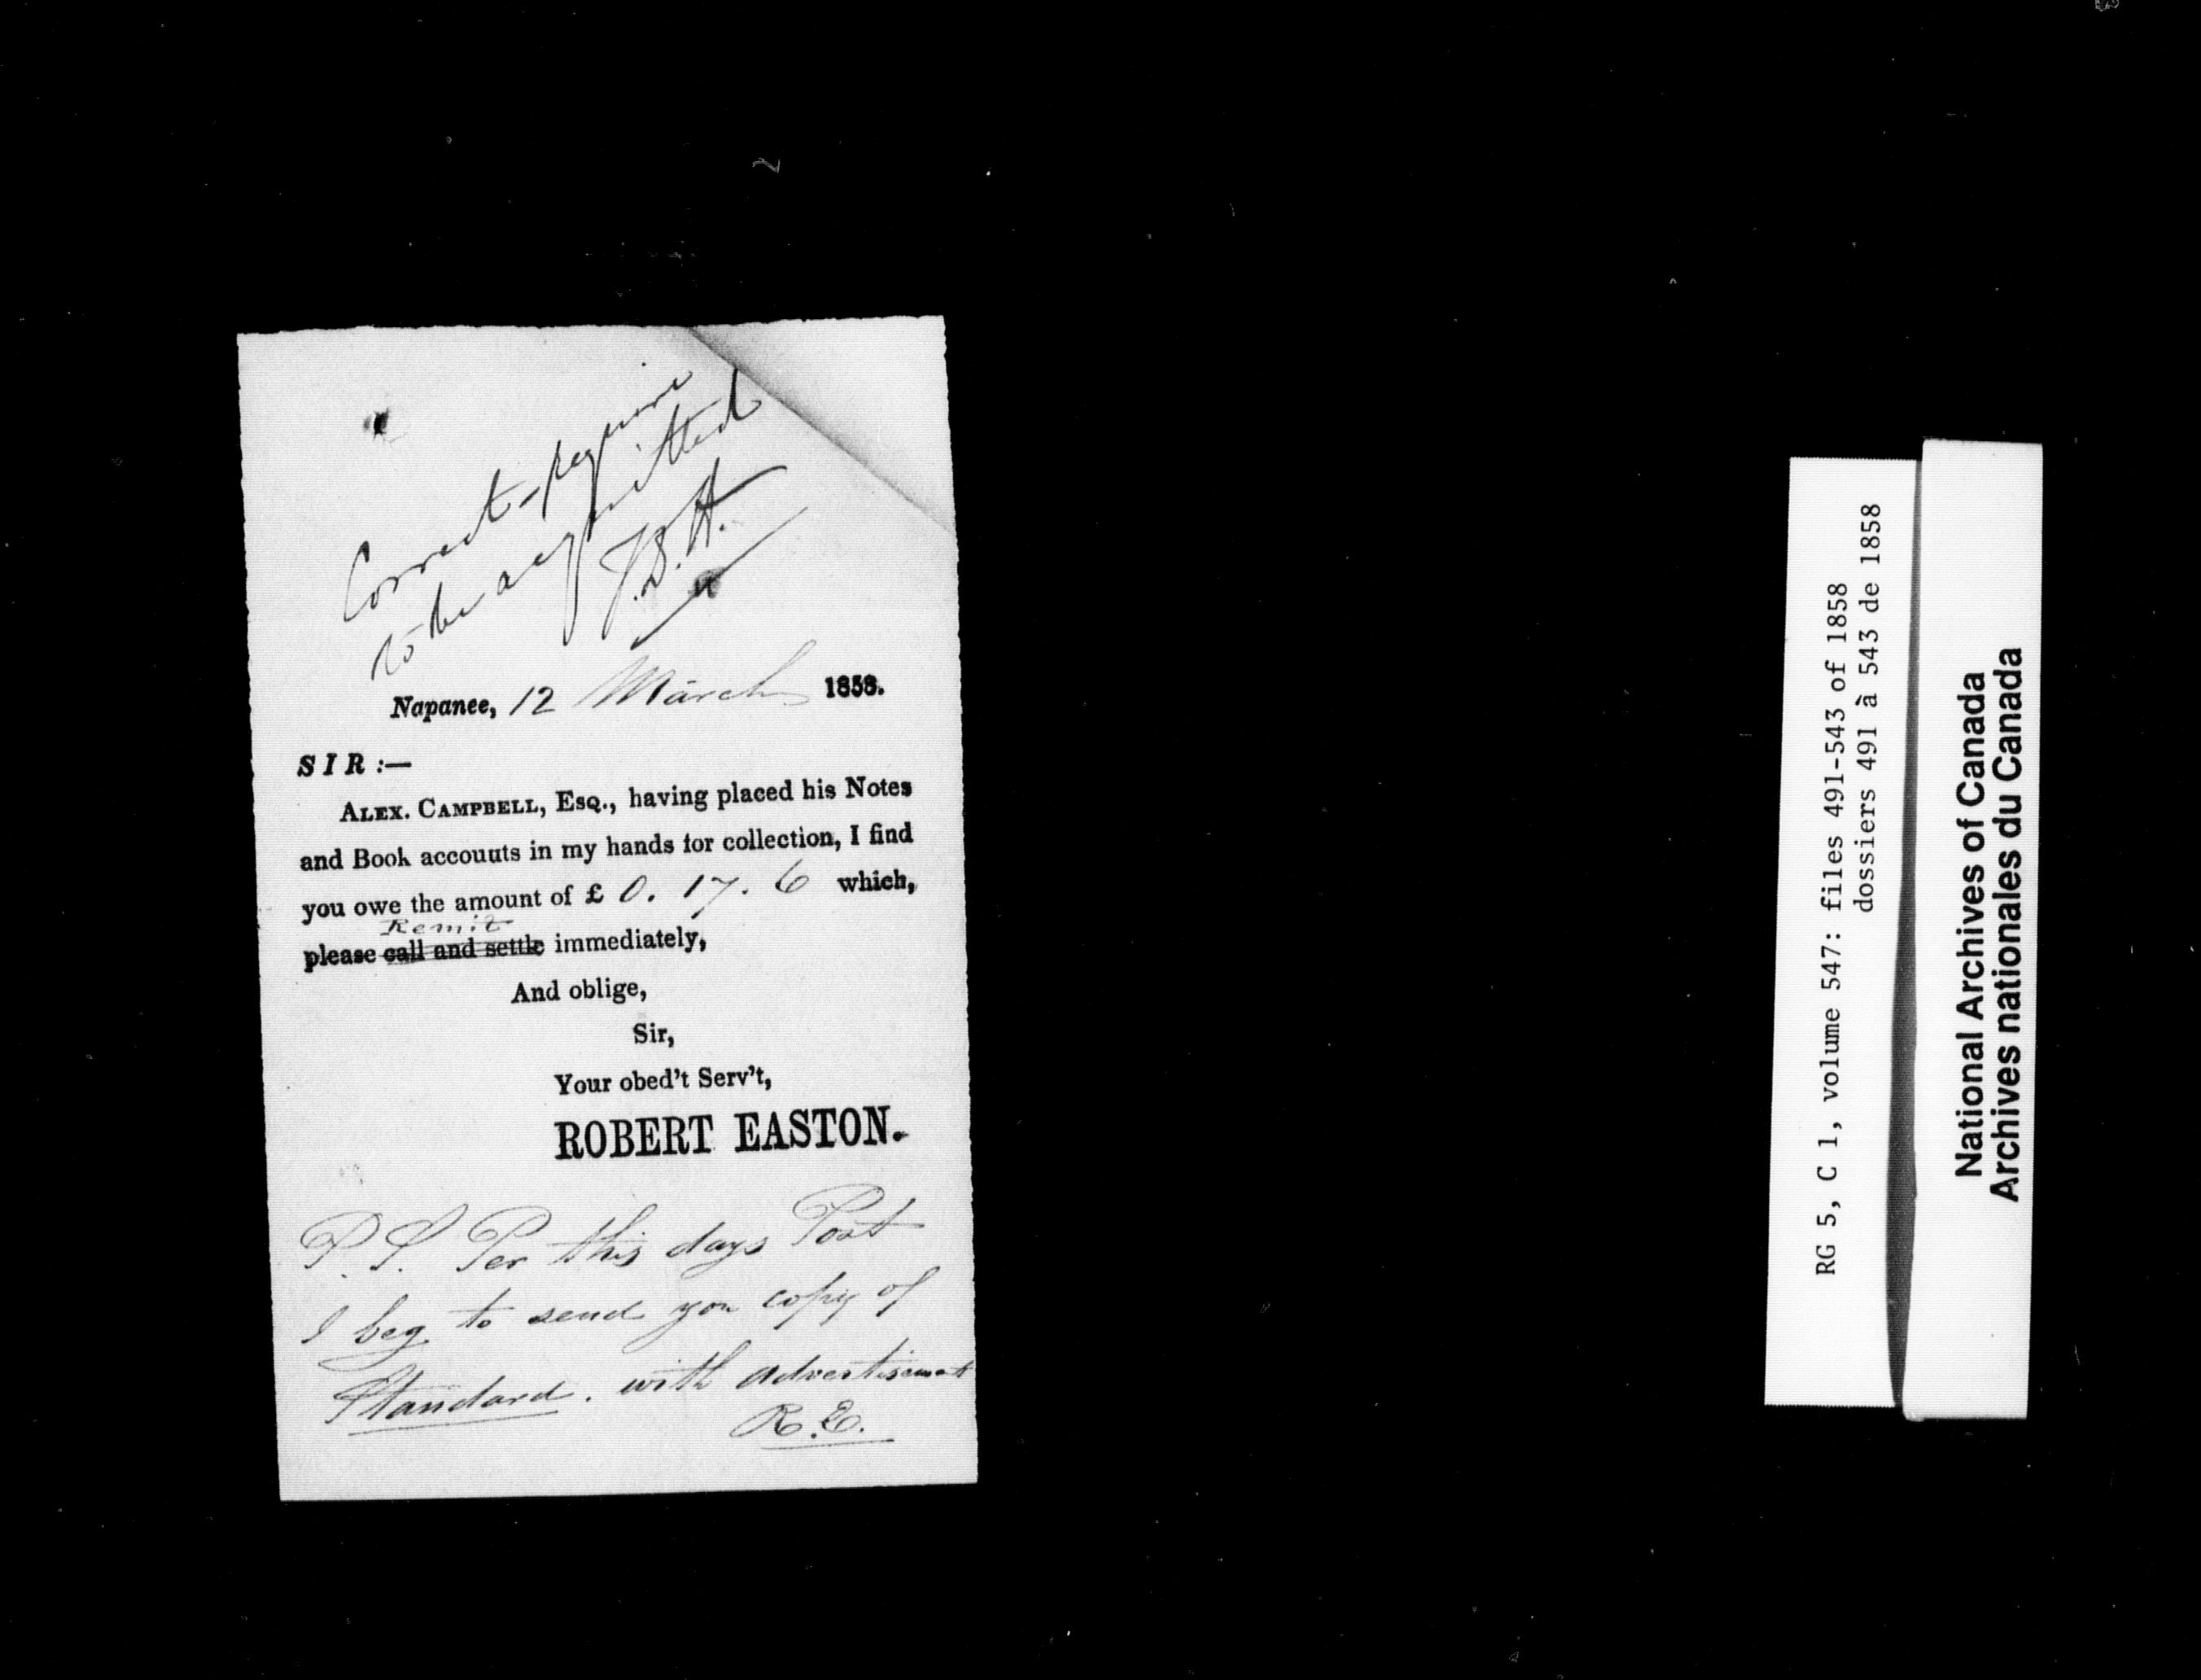 Correct - require
to be acquitted
J.B.H.
Napanee, 12 March 1858.
SIR :—
ALEX. CAMPBELL, ESQ., having placed his Notes
and Book accouuts in my hands for collection, I find
you owe the amount of £ 0. 17. 6 which,
Remit
please call and settle immediately,
And oblige,
Sir,
Your obed't Serv't,
ROBERT EASTON.
P.S. Per this days Post
I beg to send you copy of
Standard. with advertisement
R.E.
RG 5, C 1, volume 547: files 491-543 of 1858
dossiers 491 à 543 de 1858
National Archives of Canada
Archives nationales du Canada